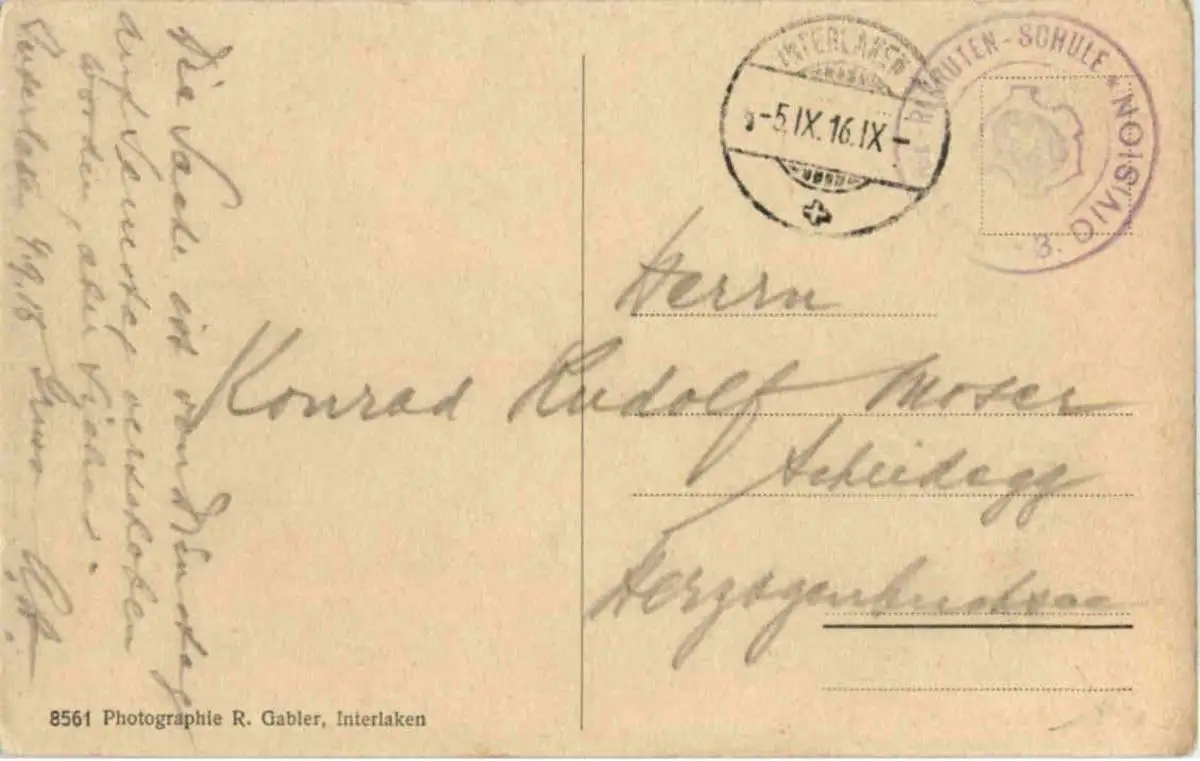 Die Sache ist von Dienstag
auf Samstag verschoben
worden,
Interlaken
Gruss
INTERLAKEN
-5.IX.16.IX-
REKRUTEN-SCHULE * 3. DIVISION
Herrn
Konrad Rudolf Moser
Scheidegg
Herzogenbuchsee
8561 Photographie R. Gabler, Interlaken